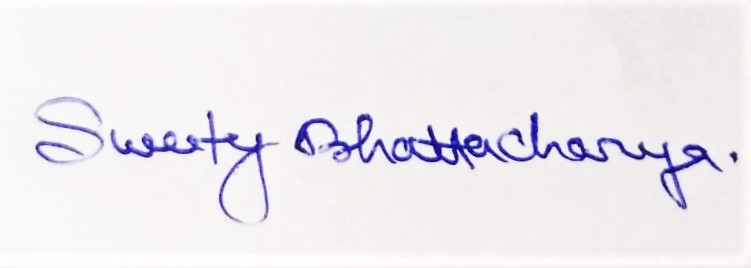 Sweety Bhattacharya.